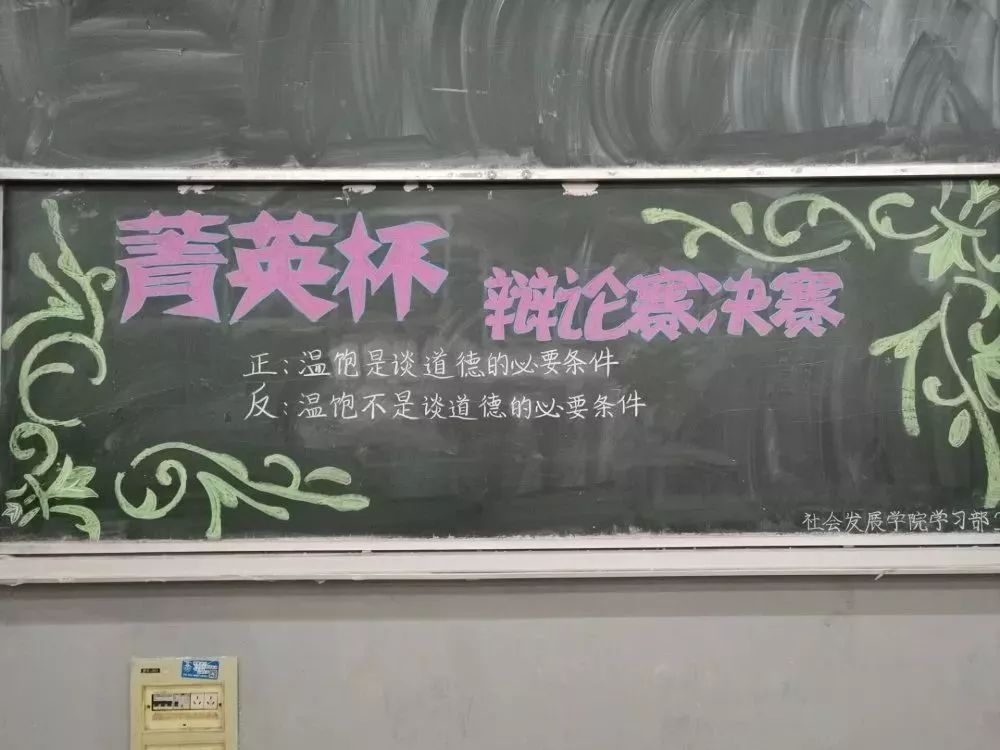 菁英杯
辩论赛决赛
正:温饱是谈道德的必要条件
反:温饱不是谈道德的必要条件
社会发展学院学习部